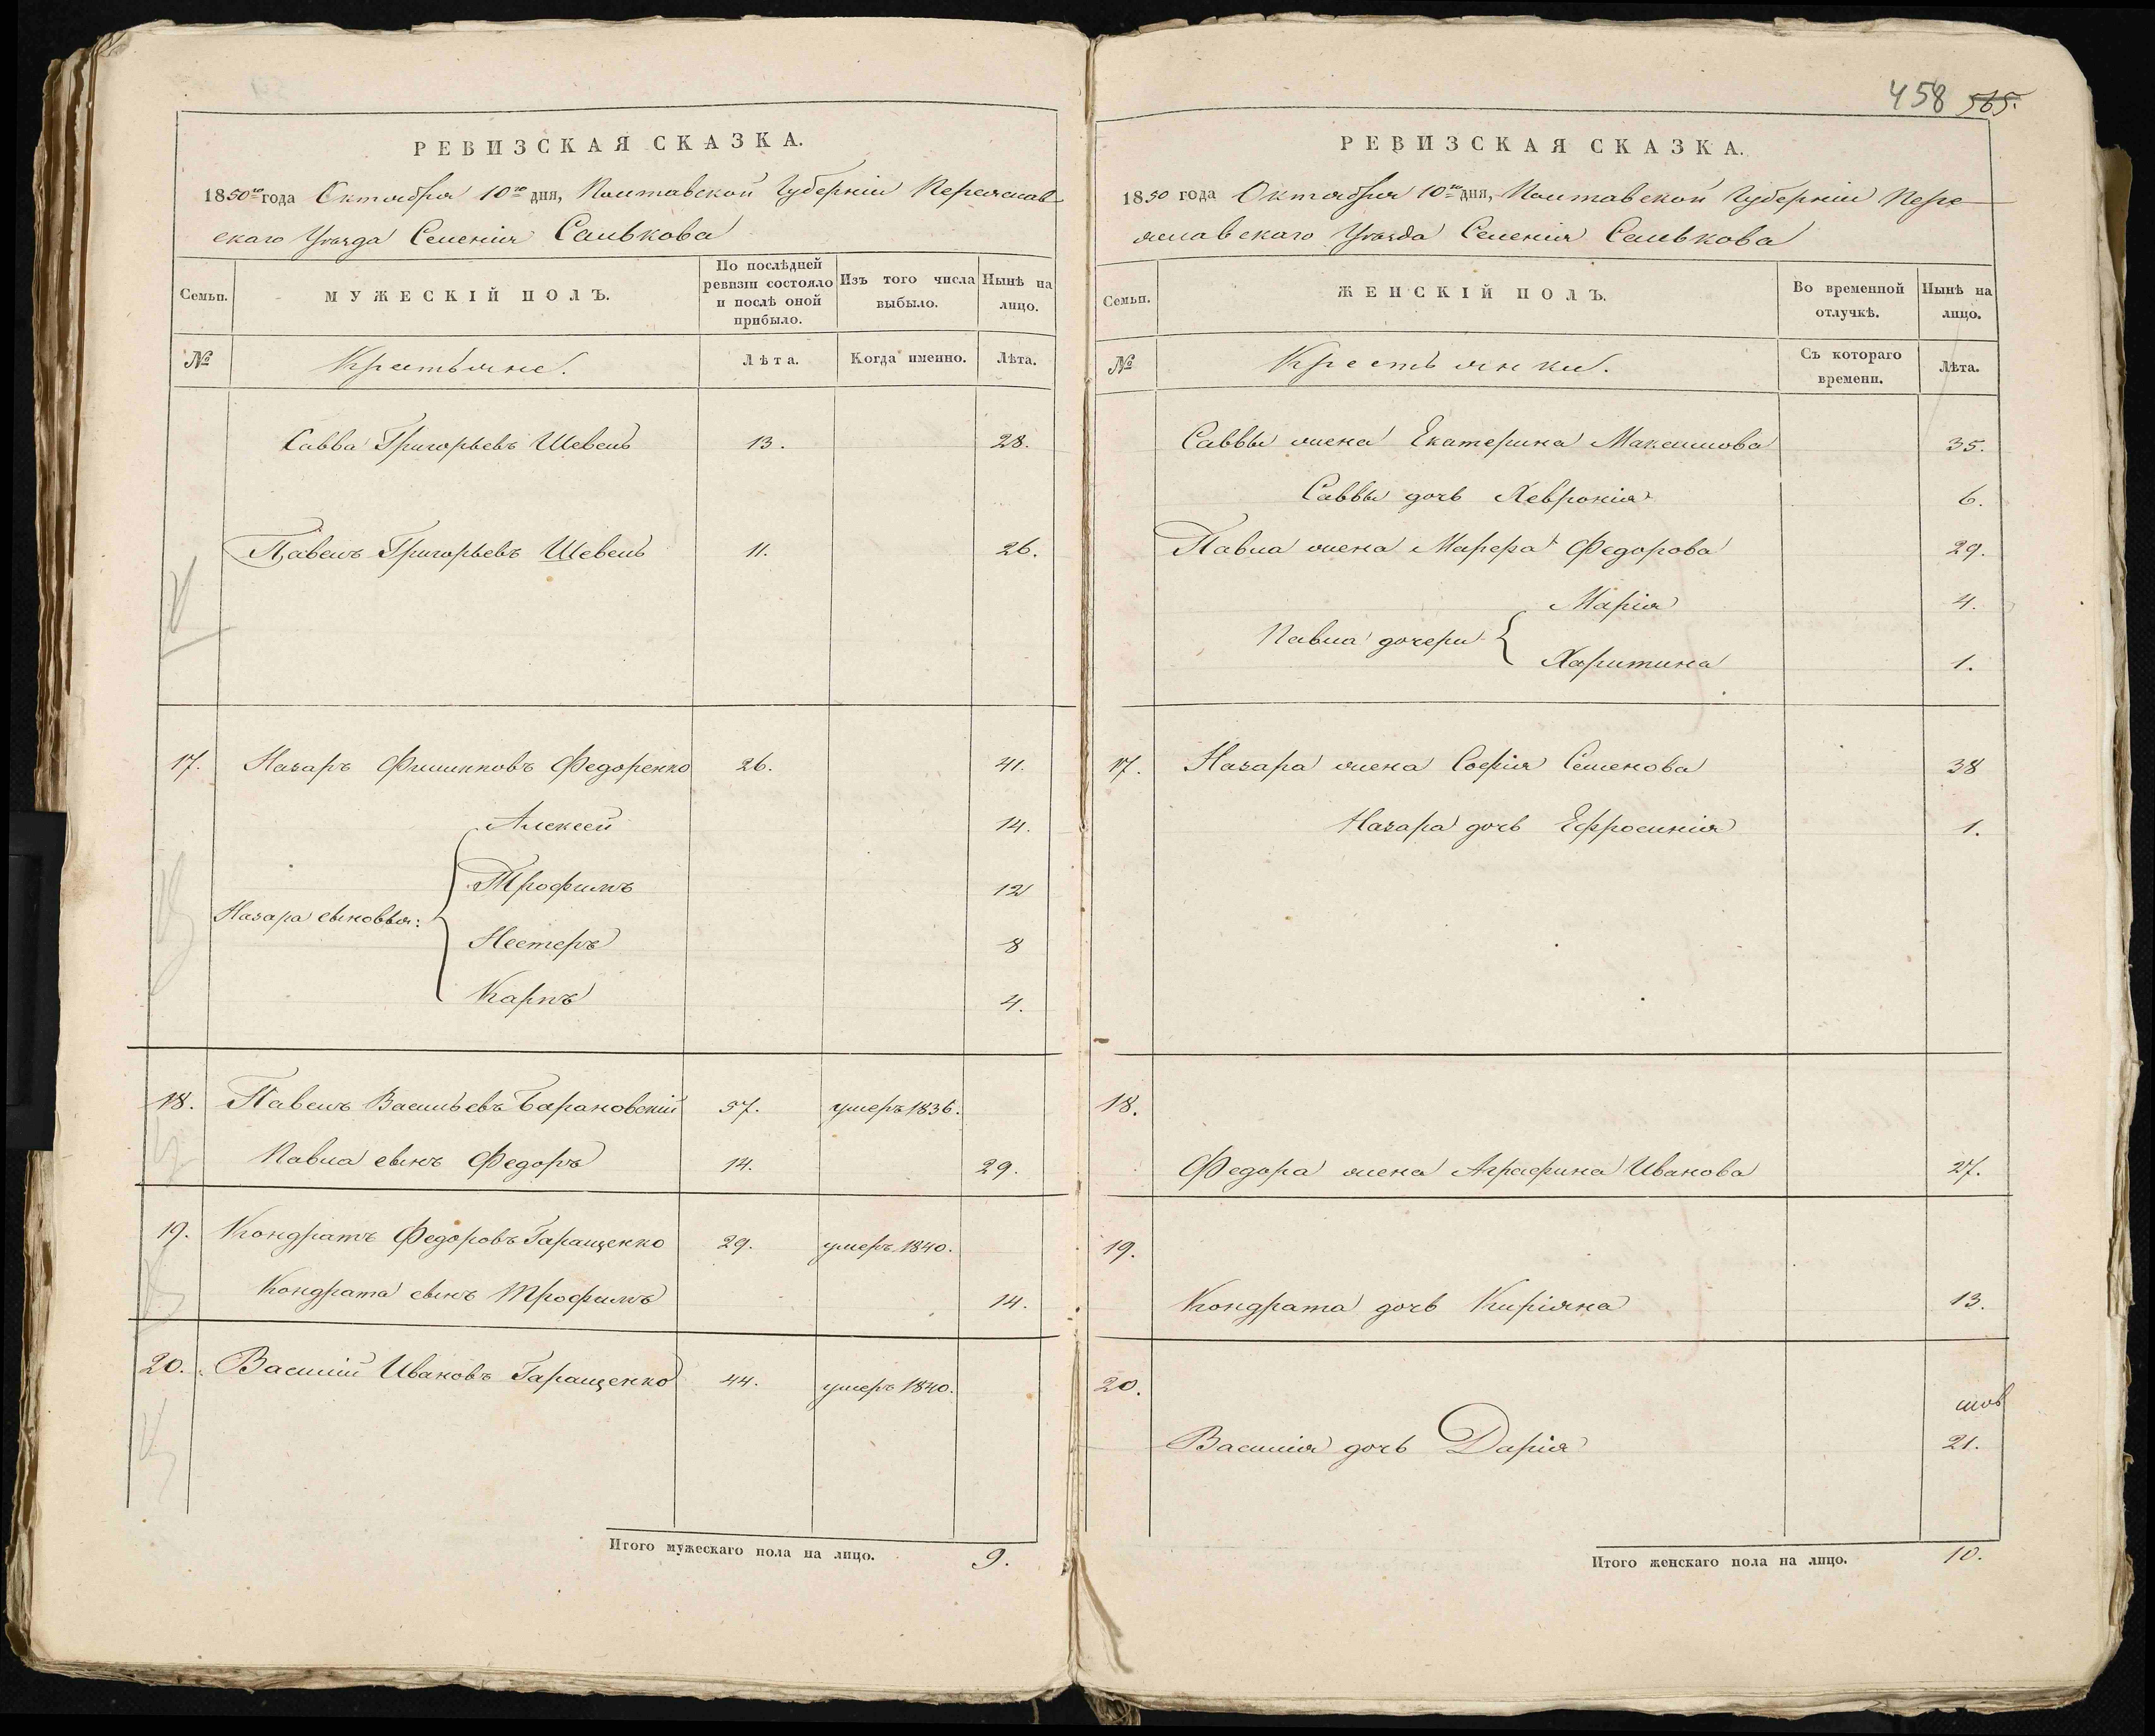 РЕВИЗСКАЯ СКАЗКА.
1850го года Октября 10го дня, Полтавской Губерніи Переяслав-
скаго Уѣзда Селенія Салькова
Семьи. МУЖЕСКІЙ ПОЛЪ. По послѣдней ревизіи состояло и послѣ оной прибыло. Изъ того числа выбыло. Нынѣ на лицо.
№ Крестьяне. Лѣта. Когда именно. Лѣта.
Савва Григорьевъ Шевель 13. 28.
Павелъ Григорьевъ Шевель 11. 26.
17. Назаръ Филипповъ Федоренко 26. 41.
Алексей 14.
Трофимъ 12
Назара сыновья:
Нестеръ 8
Карпъ 4.
18. Павелъ Васильевъ Барановскій 57. умеръ 1836.
Павла сынъ Федоръ 14. 29.
19. Кондратъ Федоровъ Гаращенко 29. умеръ 1840.
Кондрата сынъ Трофимъ 14.
20. Василій Ивановъ Гаращенко 44. умеръ 1840.
Итого мужескаго пола на лицо. 9.
458 565.
РЕВИЗСКАЯ СКАЗКА.
1850 года Октября 10го дня, Полтавской Губерніи Пере-
яславскаго Уѣзда Селенія Салькова
Семьи. ЖЕНСКІЙ ПОЛЪ. Во временной отлучкѣ. Нынѣ на лицо.
№ Крестьянки. Съ котораго времени. Лѣта.
Саввы жена Екатерина Максимова 35.
Саввы дочь Хевронія 6.
Павла жена Марфа Федорова 29.
Марія 4.
Павла дочери
Харитина 1.
17. Назара жена Софія Семенова 38
Назара дочь Ефросинія 1.
18.
Федора жена Аграфина Иванова 27.
19.
Кондрата дочь Киріяна 13.
20.
Василія дочь Дарія 21.
Итого женскаго пола на лицо. 10.